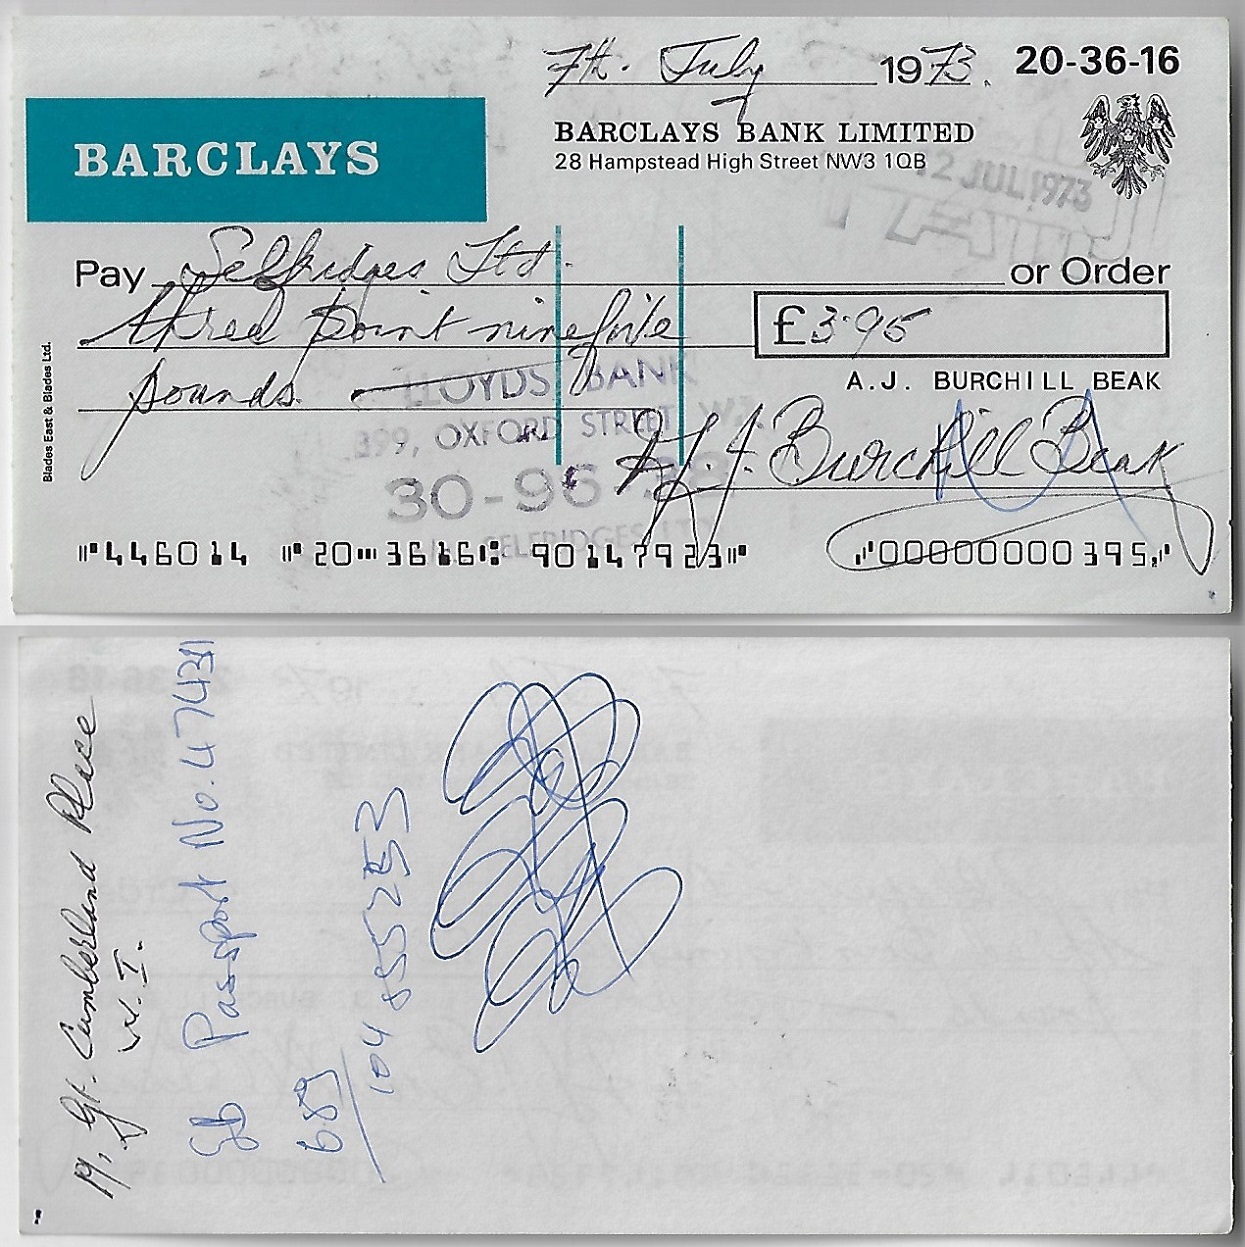 7th. July 1973. 20-36-16
BARCLAYS
BARCLAYS BANK LIMITED
28 Hampstead High Street NW3 1QB
12 JUL 1973
Pay Selfridges Ltd. or Order
three point nine five £3·95
pounds.
A.J. BURCHILL BEAK
Blades East & Blades Ltd.
LLOYDS BANK
399, OXFORD STREET W1.
30-96-38
SELFRIDGES LTD
A. J. Burchill Beak
⑈446014 ⑈20⑉3616⑆ 90147923⑈ ⑇00000000395⑇
19, Gt. Cumberland Place
W.I.
Gb Passport No. 47431
689
104 855253